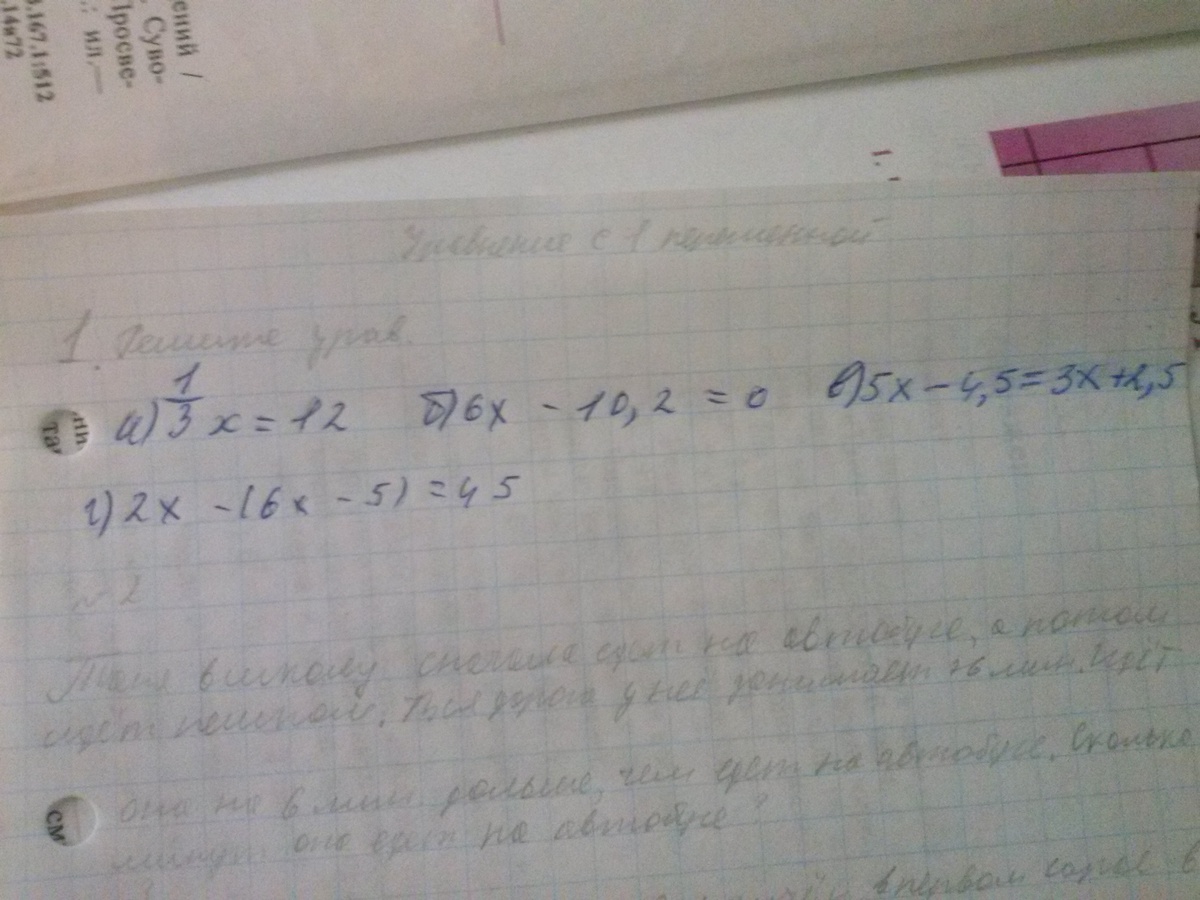 ений /
Суво-
Просве-
ил.—
.167.1:512
.14я72
1.
Уравнение с 1 переменной
1. Решите урав.
а) 1/3 x = 12 б) 6x - 10,2 = 0 в) 5x - 4,5 = 3x + 2,5
г) 2x - (6x - 5) = 45
№2
Таня в школу сначала едет на автобусе, а потом
идёт пешком. Вся дорога у неё занимает 26 мин. Идёт
она на 6 мин дольше, чем едет на автобусе. Сколько
минут она едет на автобусе?
в первом сарае в
см